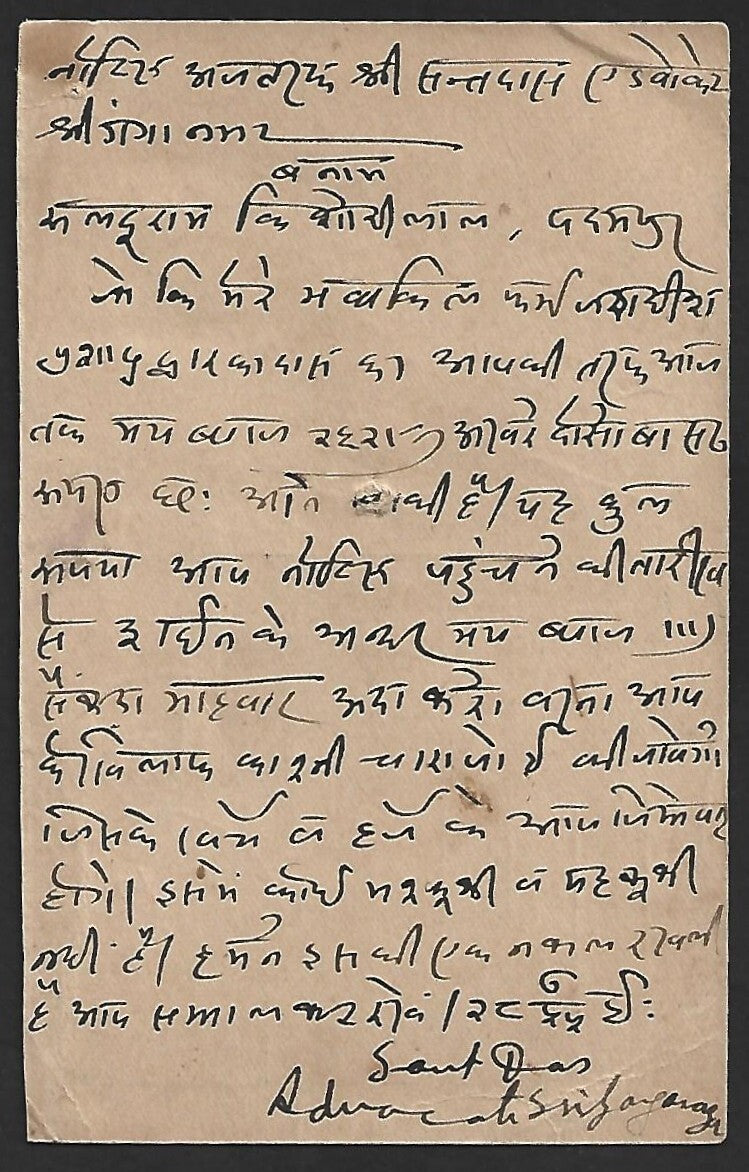 नोटिस अजतरफ श्री सन्तदास एडवोकेट
श्री गंगा नगर
बनाम
कि शोरीलाल, पदमपुर
जो कि मेरे मवक्किल फर्म
द्वारकादास का आपकी तरफ आज
तक मय ब्याज २६२।=) अखरे दोसो बासठ
रुपए छः आने बाकी हैं। यह कुल
रुपया आप नोटिस पहुंचने की तारीख
से ३ दिन के अन्दर मय ब्याज ॥।)
सैंकडा माहवार अदा करें। वरना आप
के खिलाफ कानूनी चाराजोई की जावेगी
जिसके खर्चे व हर्जे के आप जिमेवार
होंगे। इसमें कोई
नही है। हमने इसकी एक नकल रखली
हैं आप सम्भाल कर रखें। २८
Sant Das
Advocate Sriganganagar